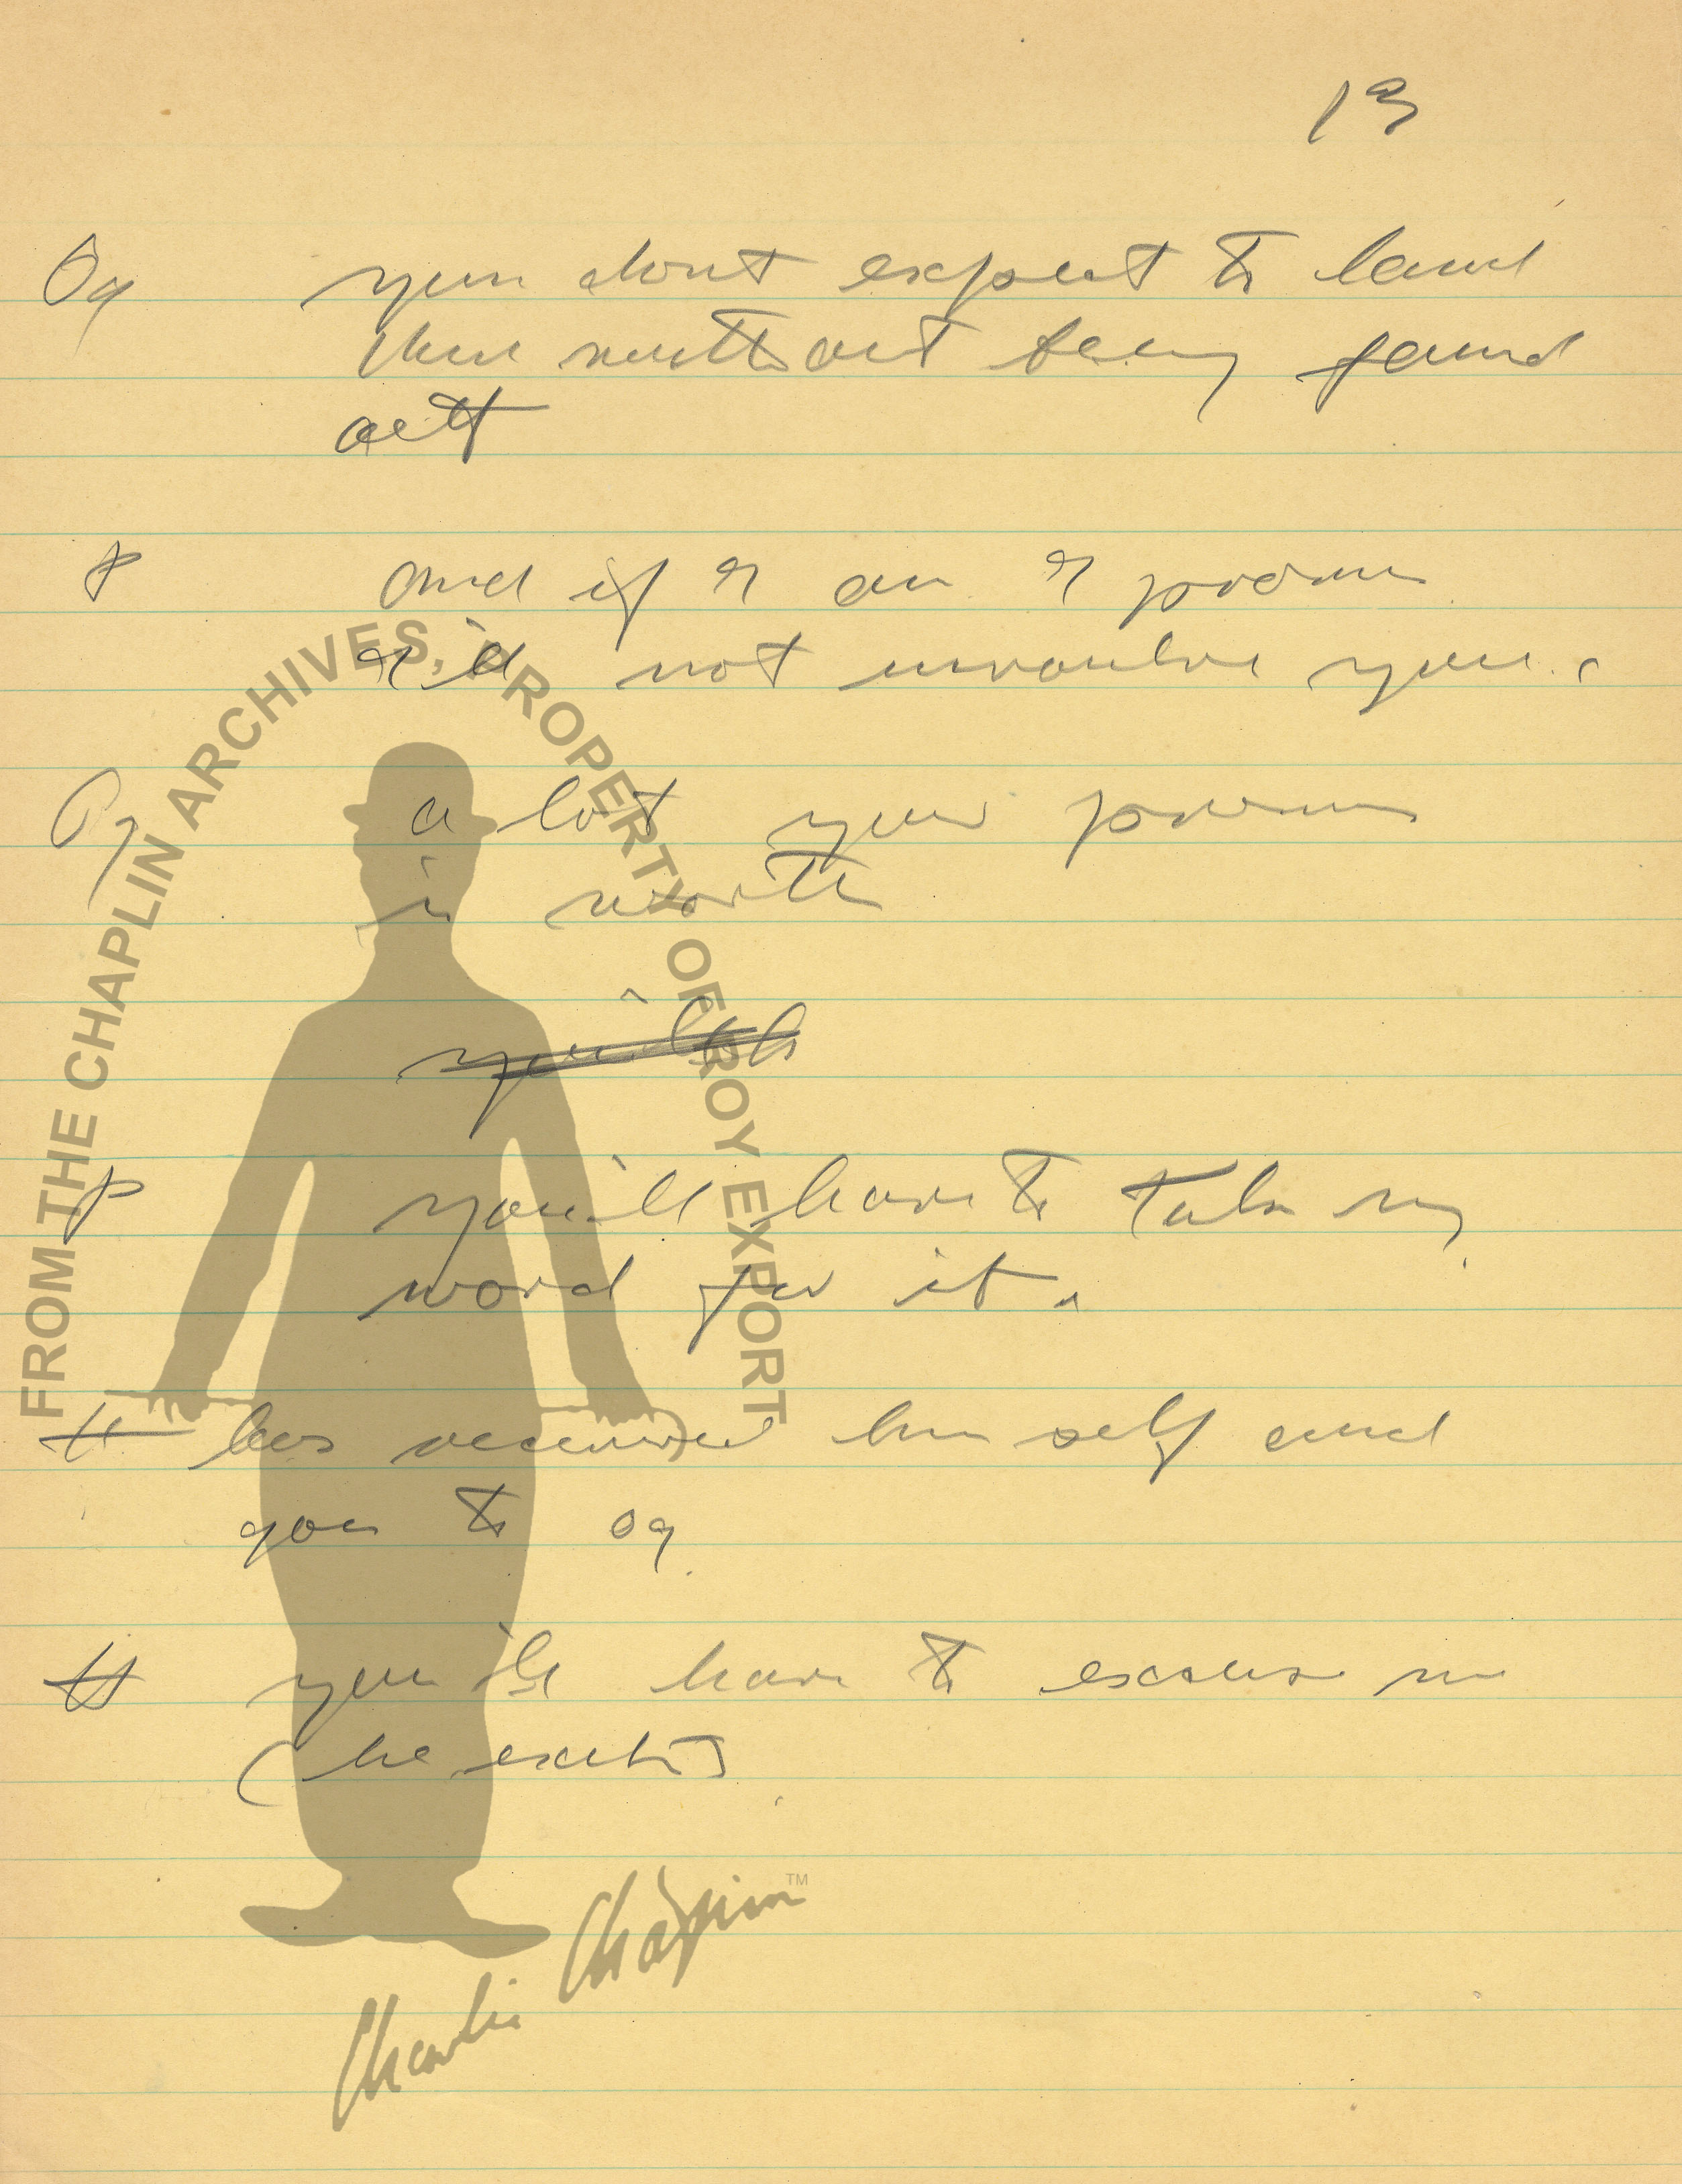 13
Og you dont expect to land
there without being found
out
P And if I am I promise
I'll not involve you.
Og a lot your promise
is worth
you'll h
P you'll have to take my
word for it.
H has recovered himself and
goes to og
H you'll have to excuse me
(he exits)
FROM THE CHAPLIN ARCHIVES, PROPERTY OF ROY EXPORT
Charlie Chaplin TM